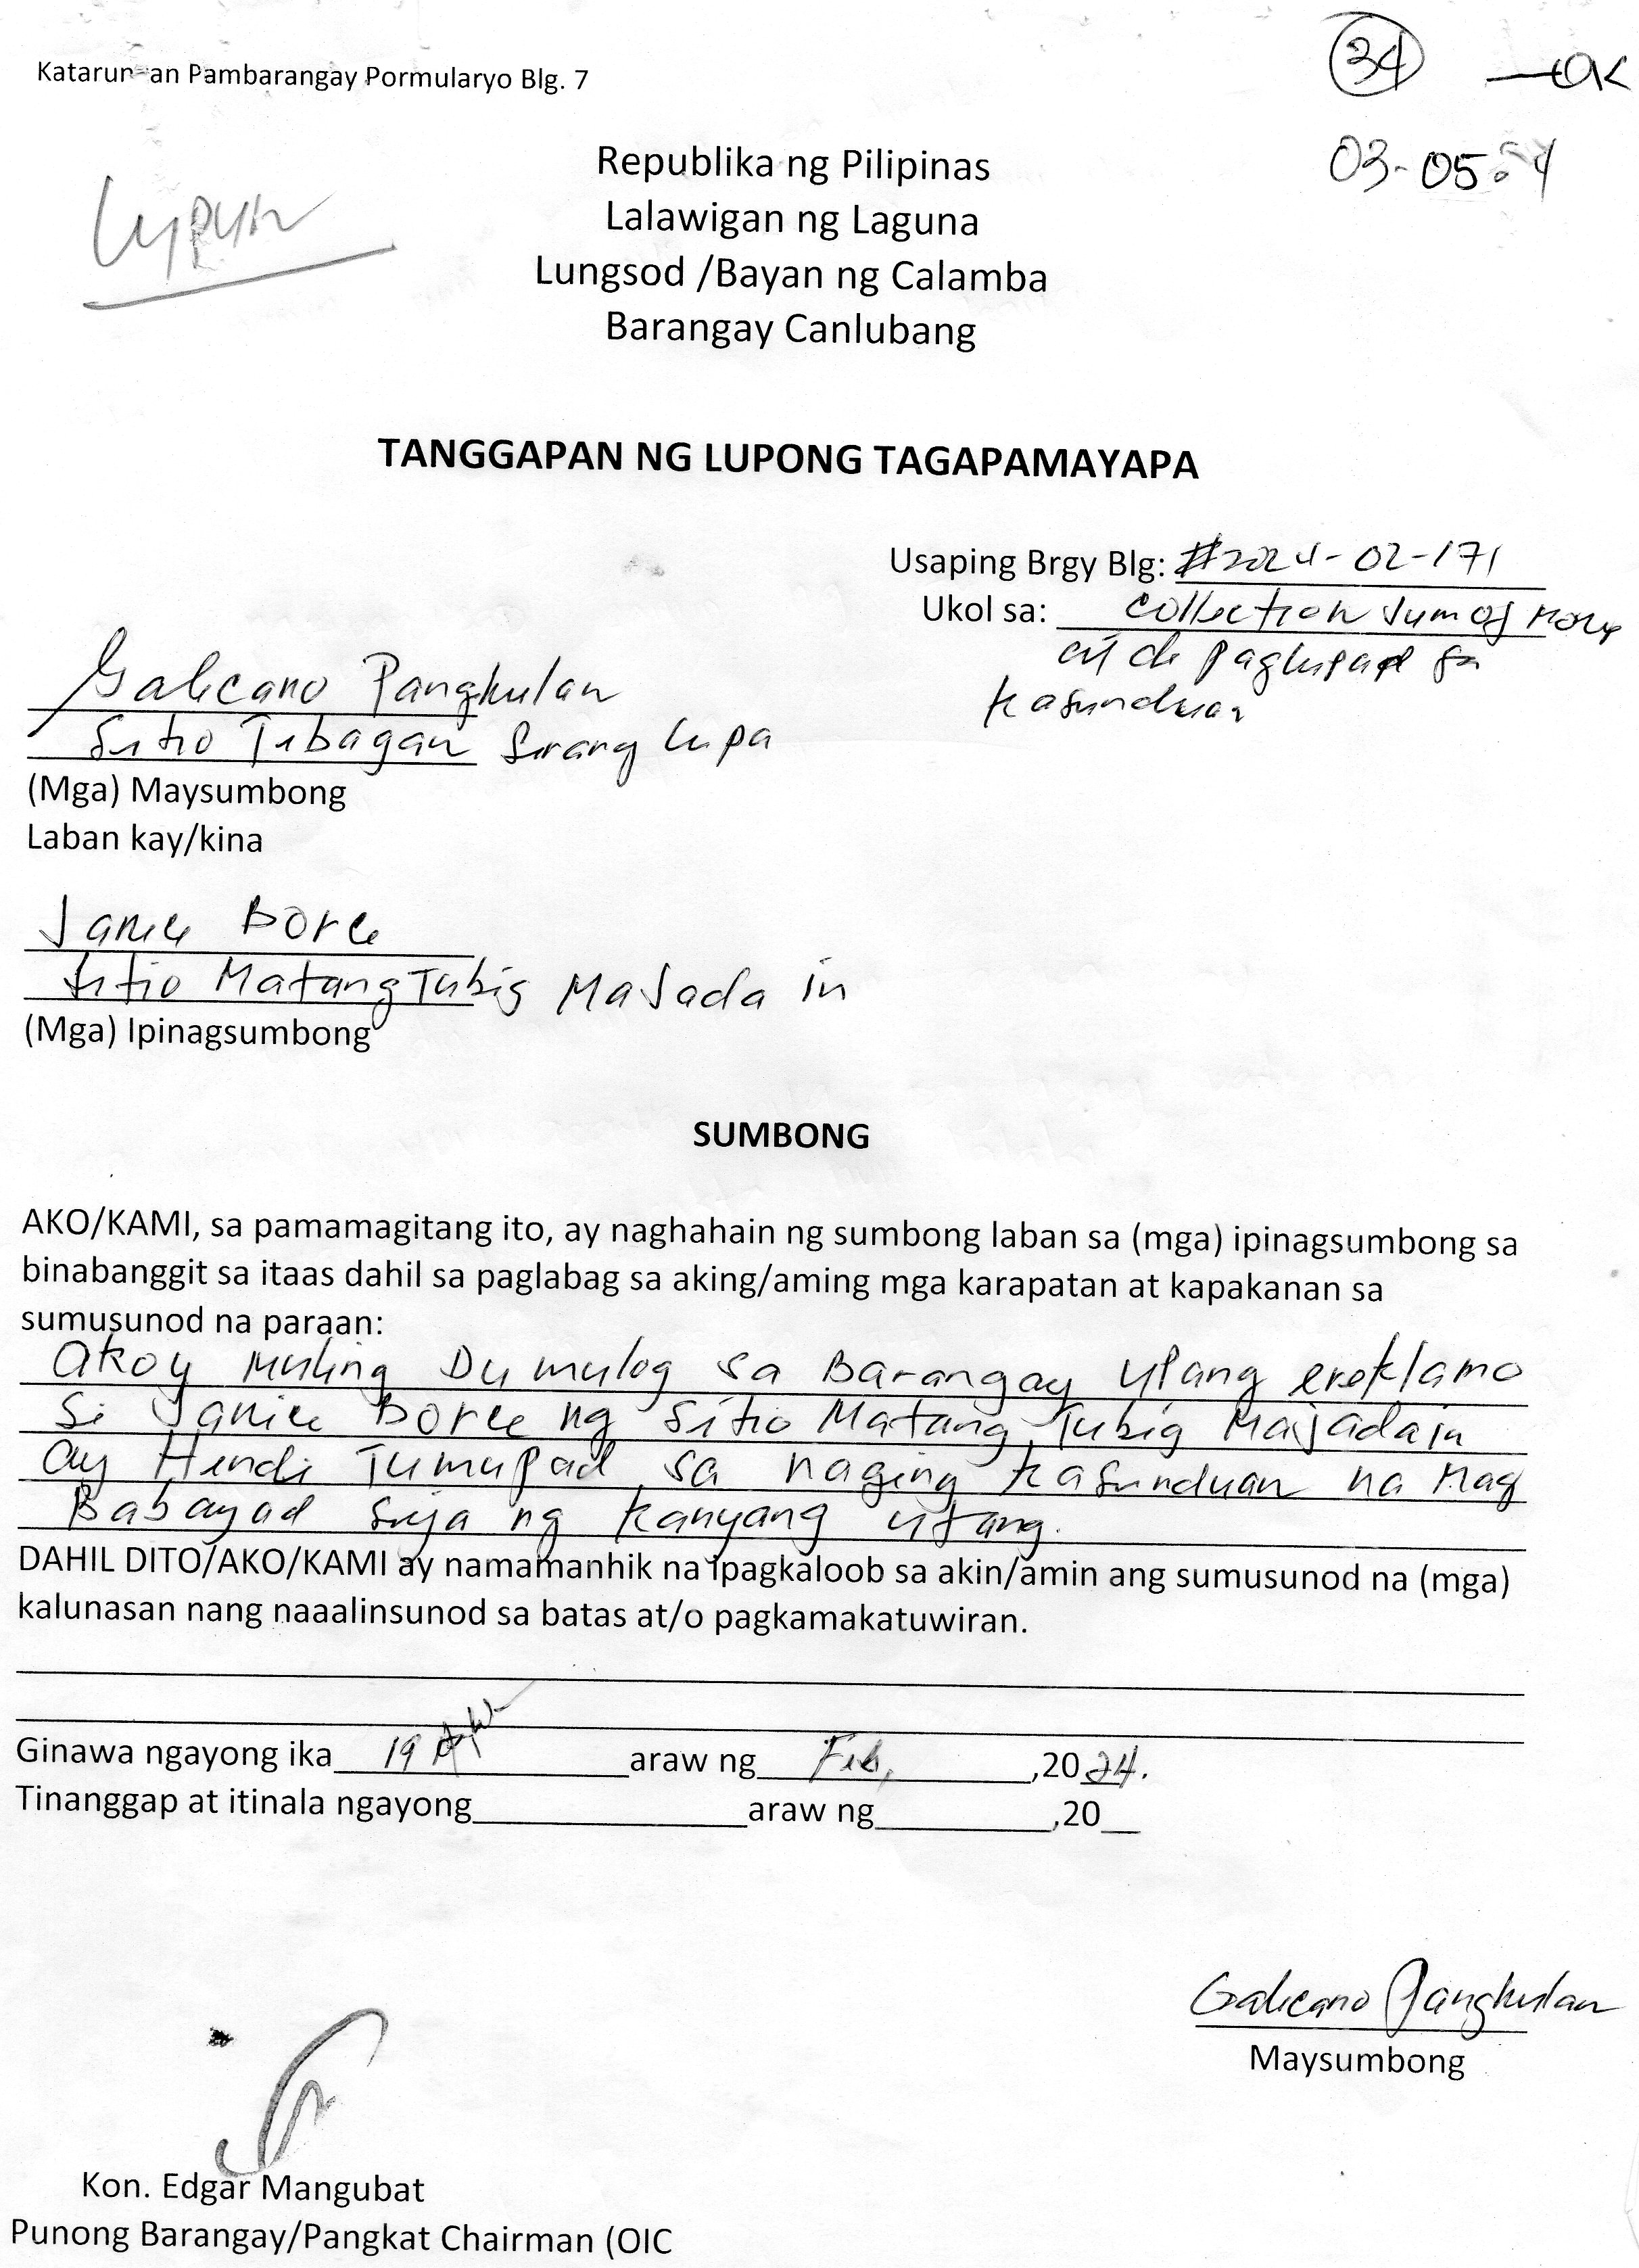 Katarun an Pambarangay Pormularyo Blg. 7
34 OK
03-05
Lupon
Republika ng Pilipinas
Lalawigan ng Laguna
Lungsod /Bayan ng Calamba
Barangay Canlubang
TANGGAPAN NG LUPONG TAGAPAMAYAPA
Usaping Brgy Blg: #2024-02-171
Ukol sa: Collection sum of
at di pagtupad sa
kasunduan
Galicano Pangkulan
Sitio Tibagan Sirang Lupa
(Mga) Maysumbong
Laban kay/kina
Janice Borce
Sitio Matang Tubig Majada in
(Mga) Ipinagsumbong
SUMBONG
AKO/KAMI, sa pamamagitang ito, ay naghahain ng sumbong laban sa (mga) ipinagsumbong sa
binabanggit sa itaas dahil sa paglabag sa aking/aming mga karapatan at kapakanan sa
sumusunod na paraan:
Akoy Muling Dumulog sa Barangay Upang ereklamo
Si Janice Borce ng Sitio Matang Tubig Majada in
ay Hindi Tumupad sa naging kasunduan na Mag
Babayad siya ng kanyang utang.
DAHIL DITO/AKO/KAMI ay namamanhik na ipagkaloob sa akin/amin ang sumusunod na (mga)
kalunasan nang naaalinsunod sa batas at/o pagkamakatuwiran.
Ginawa ngayong ika 19 araw ng Feb, ,2024.
Tinanggap at itinala ngayong araw ng ,20
Galicano Pangkulan
Maysumbong
Kon. Edgar Mangubat
Punong Barangay/Pangkat Chairman (OIC